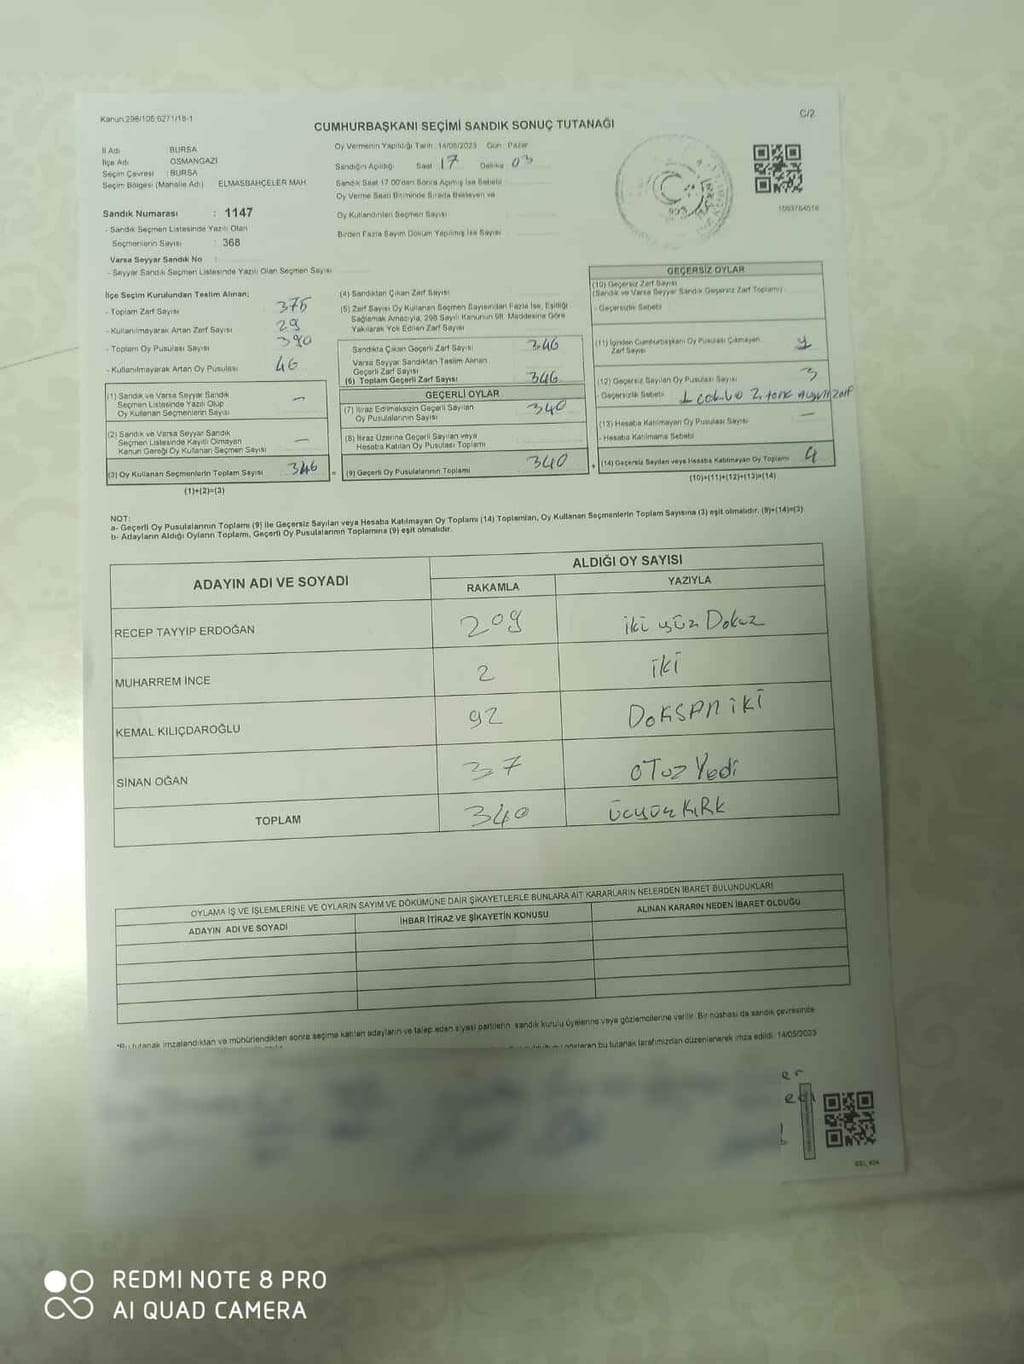 Kanun:298/106;6271/18-1
C/2
CUMHURBAŞKANI SEÇİMİ SANDIK SONUÇ TUTANAĞI
İl Adı : BURSA
İlçe Adı : OSMANGAZİ
Seçim Çevresi : BURSA
Seçim Bölgesi (Mahalle Adı) : ELMASBAHÇELER MAH.
Sandık Numarası : 1147
- Sandık Seçmen Listesinde Yazılı Olan
Seçmenlerin Sayısı : 368
Varsa Seyyar Sandık No :
- Seyyar Sandık Seçmen Listesinde Yazılı Olan Seçmen Sayısı
Oy Vermenin Yapıldığı Tarih: 14/05/2023 Gün: Pazar
Sandığın Açıldığı Saat 17 Dakika 03
Sandık Saat 17.00'den Sonra Açılmış İse Sebebi
Oy Verme Saati Bitiminde Sırada Bekleyen ve
Oy Kullandırılan Seçmen Sayısı
Birden Fazla Sayım Döküm Yapılmış İse Sayısı
İlçe Seçim Kurulundan Teslim Alınan;
- Toplam Zarf Sayısı 375
- Kullanılmayarak Artan Zarf Sayısı 29
- Toplam Oy Pusulası Sayısı 390
- Kullanılmayarak Artan Oy Pusulası 46
(1) Sandık ve Varsa Seyyar Sandık
Seçmen Listesinde Yazılı Olup
Oy Kullanan Seçmenlerin Sayısı —
(2) Sandık ve Varsa Seyyar Sandık
Seçmen Listesinde Kayıtlı Olmayan
Kanun Gereği Oy Kullanan Seçmen Sayısı —
(3) Oy Kullanan Seçmenlerin Toplam Sayısı 346
(1)+(2)=(3)
(4) Sandıktan Çıkan Zarf Sayısı
(5) Zarf Sayısı Oy Kullanan Seçmen Sayısından Fazla İse, Eşitliği
Sağlamak Amacıyla, 298 Sayılı Kanunun 98. Maddesine Göre
Yakılarak Yok Edilen Zarf Sayısı
Sandıkta Çıkan Geçerli Zarf Sayısı 346
Varsa Seyyar Sandıktan Teslim Alınan
Geçerli Zarf Sayısı
(6) Toplam Geçerli Zarf Sayısı 346
GEÇERLİ OYLAR
(7) İtiraz Edilmeksizin Geçerli Sayılan
Oy Pusulalarının Sayısı 340
(8) İtiraz Üzerine Geçerli Sayılan veya
Hesaba Katılan Oy Pusulası Toplamı
(9) Geçerli Oy Pusulalarının Toplamı 340
GEÇERSİZ OYLAR
(10) Geçersiz Zarf Sayısı
(Sandık ve Varsa Seyyar Sandık Geçersiz Zarf Toplamı)
- Geçersizlik Sebebi
(11) İçinden Cumhurbaşkanı Oy Pusulası Çıkmayan
Zarf Sayısı
(12) Geçersiz Sayılan Oy Pusulası Sayısı 3
- Geçersizlik Sebebi
(13) Hesaba Katılmayan Oy Pusulası Sayısı —
- Hesaba Katılmama Sebebi
(14) Geçersiz Sayılan veya Hesaba Katılmayan Oy Toplamı 4
(10)+(11)+(12)+(13)=(14)
NOT:
a- Geçerli Oy Pusulalarının Toplamı (9) ile Geçersiz Sayılan veya Hesaba Katılmayan Oy Toplamı (14) Toplamları, Oy Kullanan Seçmenlerin Toplam Sayısına (3) eşit olmalıdır. (9)+(14)=(3)
b- Adayların Aldığı Oyların Toplamı, Geçerli Oy Pusulalarının Toplamına (9) eşit olmalıdır.
ADAYIN ADI VE SOYADI
ALDIĞI OY SAYISI
RAKAMLA YAZIYLA
RECEP TAYYİP ERDOĞAN 209 iki yüz Dokuz
MUHARREM İNCE 2 iki
KEMAL KILIÇDAROĞLU 92 DOKSAN iKi
SİNAN OĞAN 37 OTuz Yedi
TOPLAM 340 üçyüz KIRK
OYLAMA İŞ VE İŞLEMLERİNE VE OYLARIN SAYIM VE DÖKÜMÜNE DAİR ŞİKAYETLERLE BUNLARA AİT KARARLARIN NELERDEN İBARET BULUNDUKLARI
ADAYIN ADI VE SOYADI İHBAR İTİRAZ VE ŞİKAYETİN KONUSU ALINAN KARARIN NEDEN İBARET OLDUĞU
*Bu tutanak imzalandıktan ve mühürlendikten sonra seçime katılan adayların ve talep eden siyasi partilerin sandık kurulu üyelerine veya gözlemcilerine verilir. Bir nüshası da sandık çevresinde
bu tutanak tarafımızdan düzenlenerek imza edildi. 14/05/2023
REDMI NOTE 8 PRO
AI QUAD CAMERA